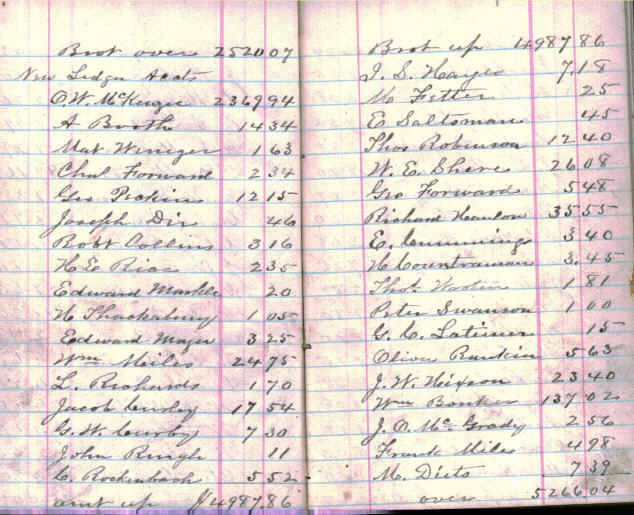 Brot over 2520 07
New Ledger Accts
O.W. McKenzie 2369 94
A Booth 14 34
Mat Winiger 1 63
Chal Forward 2 34
Geo Perkins 12 15
Joseph Dix 46
Robt Collins 3 16
H E Rice 2 35
Edward Markle 20
H Thackabury 1 05
Edward Mager 3 25
Wm Miles 24 75
L. Richards 1 70
Jacob 17 54
G. W. 7 30
John 11
C. Rockenbach 5 52
amt up $4987.86
Brot up 4987 86
I. S. 7.18
M Fetter 25
E Saltsman 45
Thos Robinson 12 40
W. E. Shere 26 08
Geo Forward 5 48
Richard Hanlon 35 55
E. Cummings 3 40
H Countraman 3.45
Thos Wooten 1 81
Peter Swanson 1 00
G. C. Latimer 15
Oliver Rankin 5 63
J. W. Hixson 23 40
Wm 137.02
J. O. McGrady 2 56
Frank Miles 4 98
M. Diets 7 39
over 5266.04